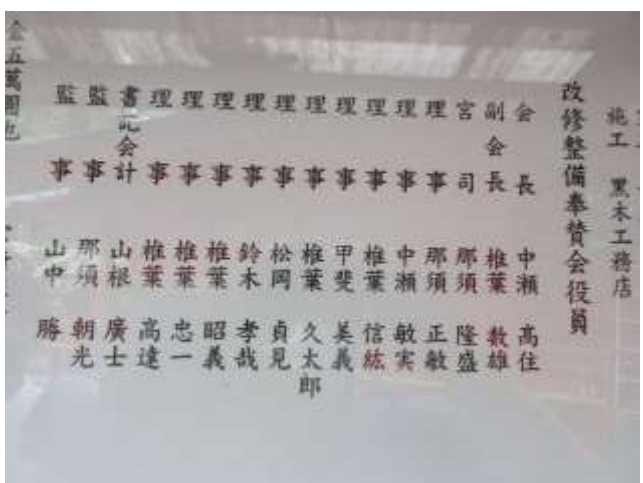 施工 黒木工務店
改修整備奉賛会役員
会長 中瀬 高住
副会長 椎葉 数雄
宮司 那須 隆盛
理事 那須 正敏
理事 中瀬 敏実
理事 椎葉 信紘
理事 甲斐 美義
理事 椎葉 久太郎
理事 松岡 貞見
理事 鈴木 孝哉
理事 椎葉 昭義
理事 椎葉 忠一
理事 椎葉 高達
書記会計 山根 廣士
監事 那須 朝光
監事 山中 勝
金五萬圓也